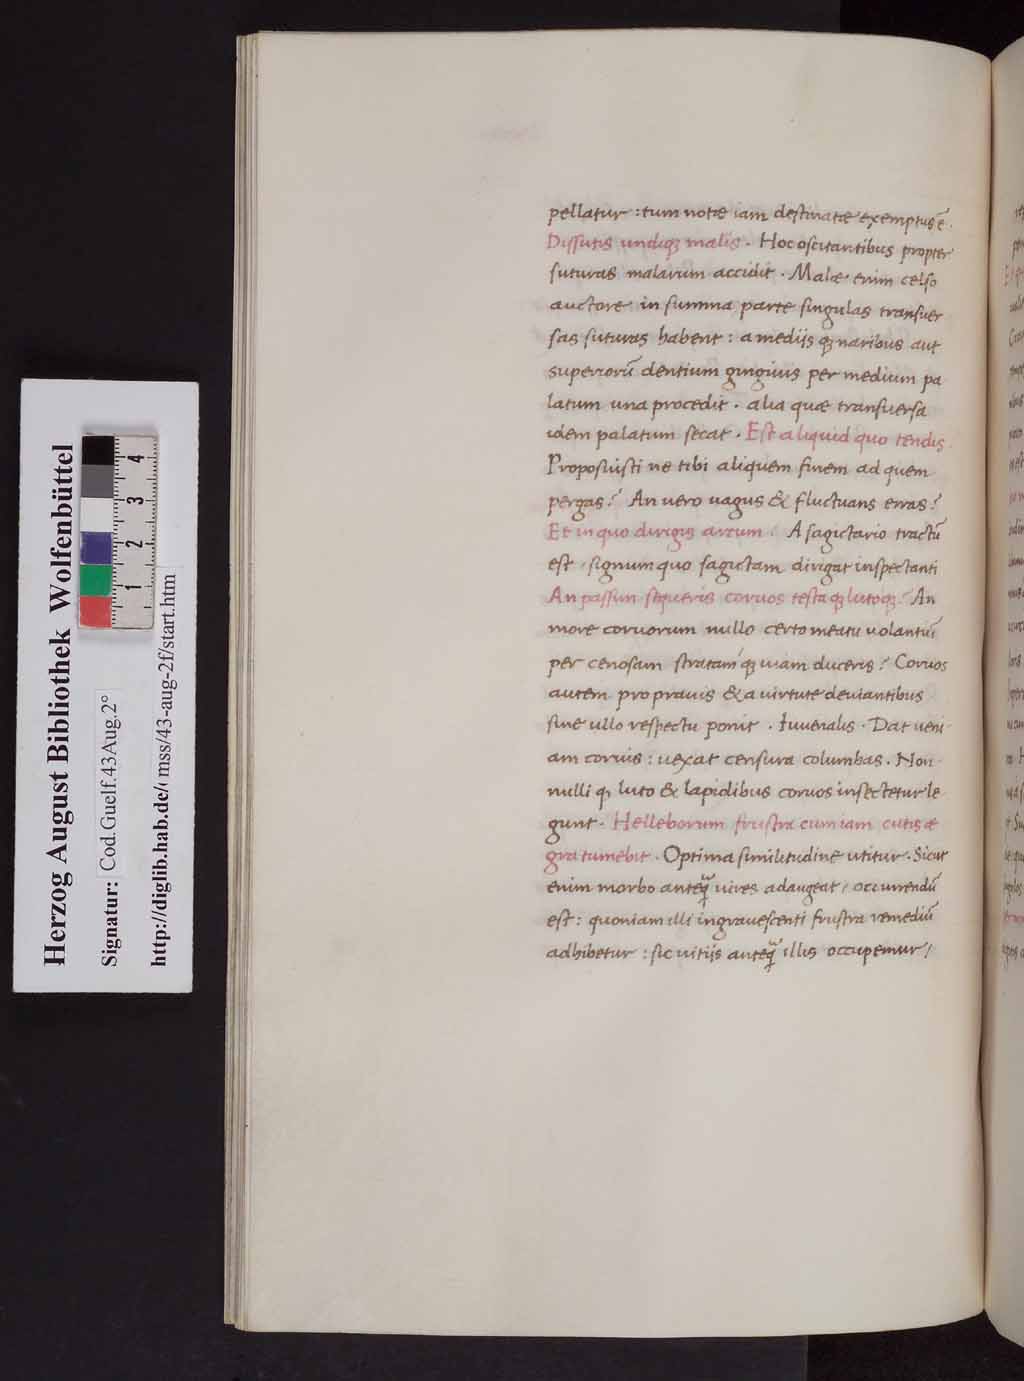 pellatur : tum notæ iam destinatæ exemptus ē .
Dissutis undiqꝫ malis . Hoc oscitantibus propter
suturas malarum accidit . Malæ enim celso
auctore in summa parte singulas transuer
sas suturas habent : a medijs qꝫ naribus aut
superiorū dentium gingiuis per medium pa
latum una procedit . alia quæ transuersa
idem palatum secat . Est aliquid quo tendis .
Proposuisti ne tibi aliquem finem ad quem
pergas ? An uero uagus & fluctuans erras ?
Et in quo dirigis arcum ? A sagictario tractū
est , signum quo sagictam dirigat inspectanti
An passim sequeris coruos testa qꝫ lutoqꝫ ? An
more coruorum nullo certo meatu uolantiū
per cenosam stratam qꝫ uiam duceris ? Coruos
autem pro prauis & a uirtute deuiantibus
sine ullo respectu ponit . Iuuenalis . Dat ueni
am coruis : uexat censura columbas . Non
nulli qꝫ luto & lapidibus coruos insectetur le
gunt . Helleborum frustra cum iam cutis æ
gra tumebit . Optima similitudine utitur . Sicut
enim morbo anteq̃ uires adaugeat / occurrendū
est : quoniam illi ingrauescenti frustra remediū
adhibetur : sic uitijs anteq̃ illis occupemur /
Herzog August Bibliothek Wolfenbüttel
Signatur: Cod.Guelf.43Aug.2°
http://diglib.hab.de/ mss/43-aug-2f/start.htm
1 2 3 4